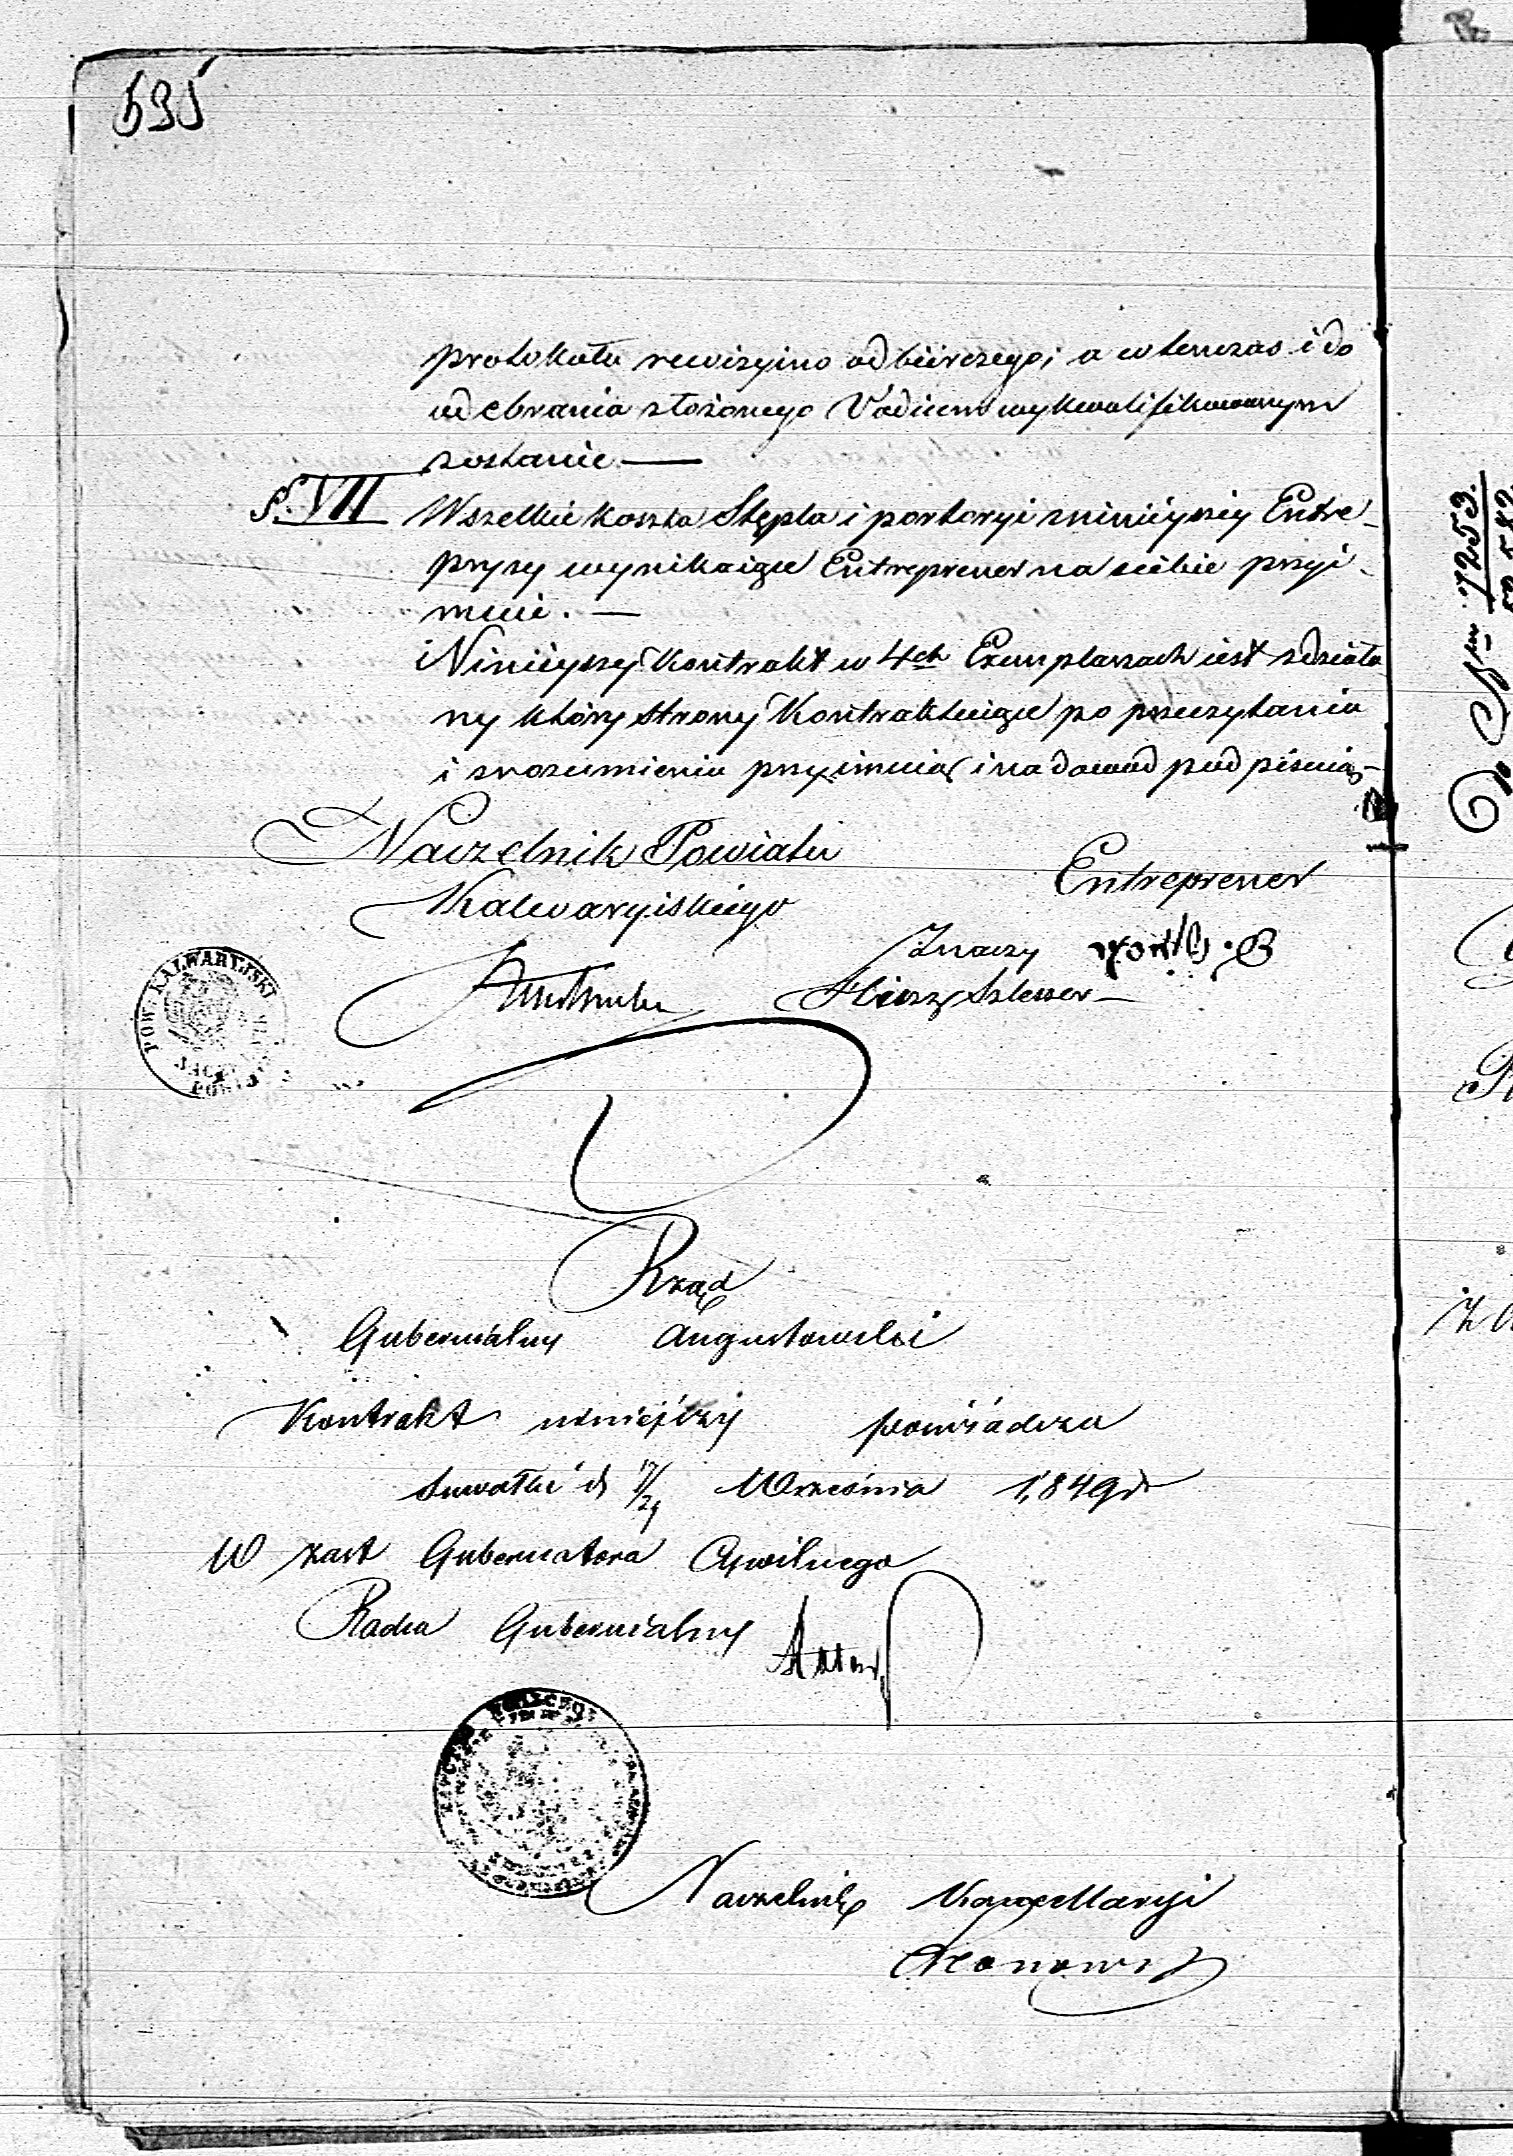 695
protokułu rewizyino odbiorczego, a wtenczas i do
odebrania złożonego Vadium wykwalifikowanym
zostanie —
§. VII Wszelkie koszta Stępla i portoryi z niniéyszéy Entre-
pryzy wynikaiące Entreprener na siebie przyi-
muie. —
Niniéyszy Kontrakt w 4ch Exemplarzach iest zdziała
ny który strony Kontraktuiące po przeczytaniu
i zrozumieniu przyimuią i na dowód podpisuią —
Naczelnik Powiatu
Kalwaryiskiego
Entreprener
Znaczy
Szlesser —
POW. KALWARYJSKI
Rząd
Gubernialny Augustowski
Kontrakt niniejszy poświadcza
Suwałki d 17/29 Września 1849 r
W zast Gubernatora Cywilnego
Radca Gubernialny
Naczelnik Kancellaryi
No 7259.